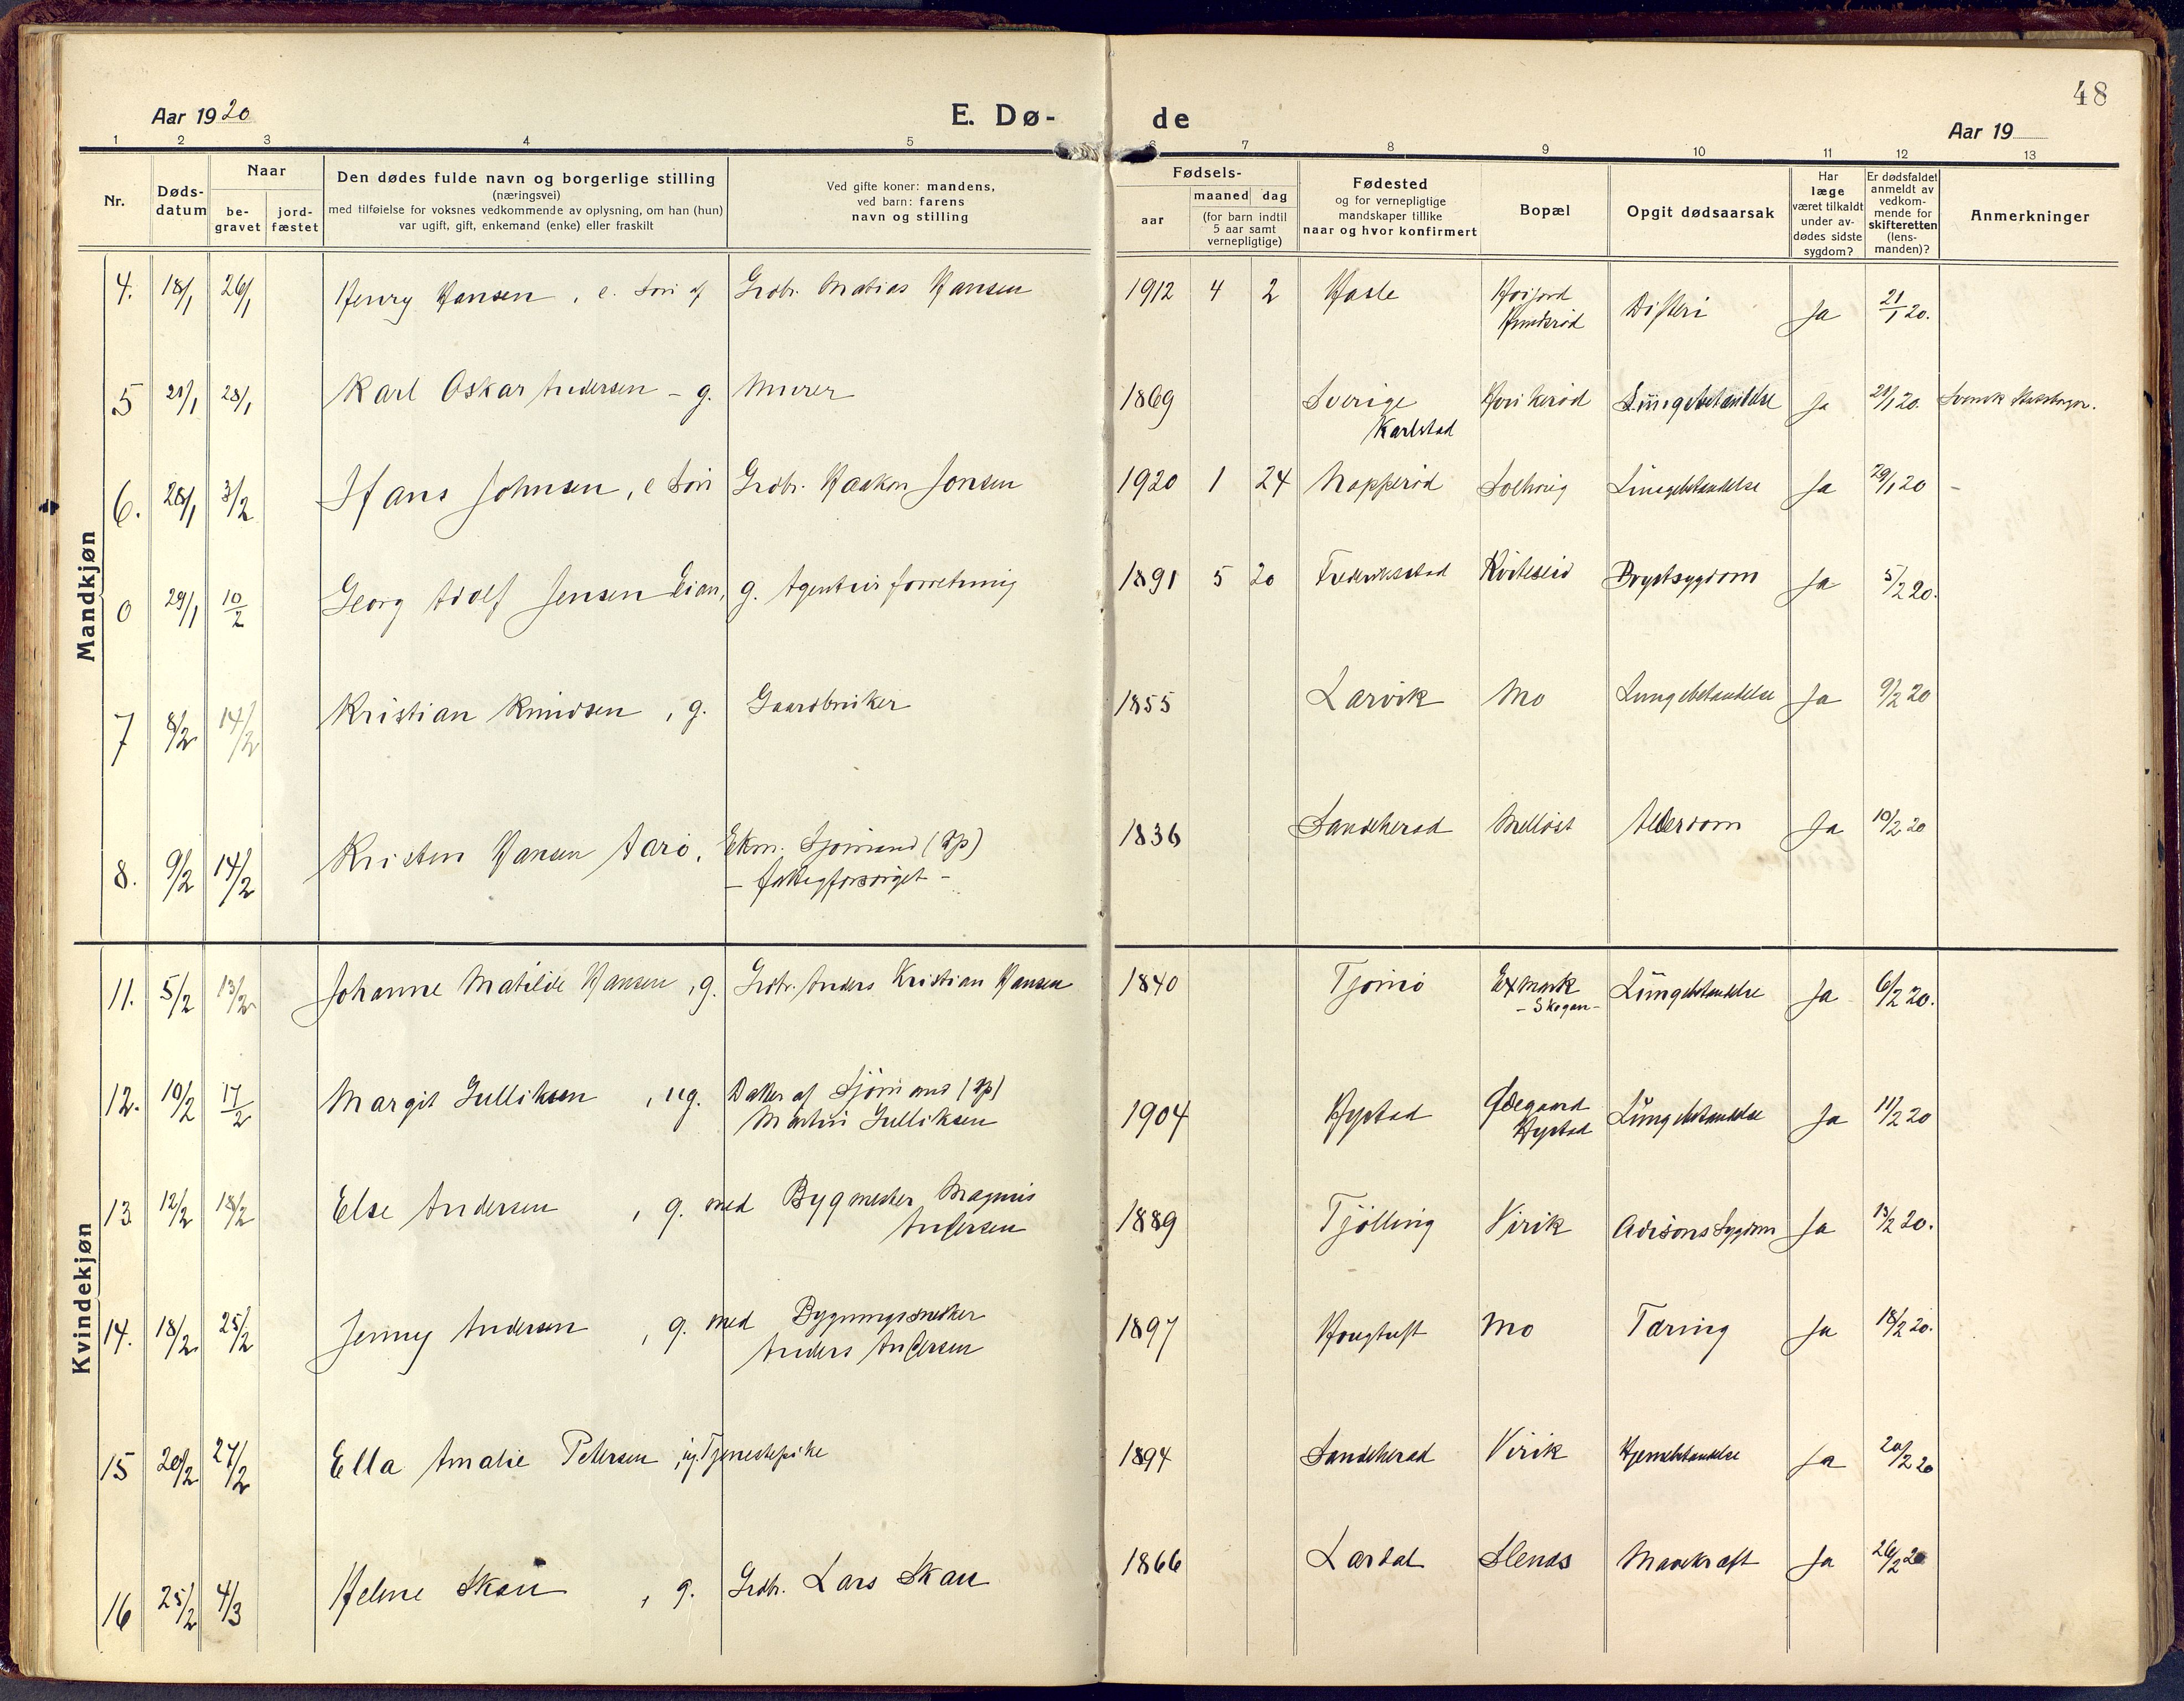 48
Aar 1920
E. Dø-
de
Aar 19
1 2 3 4 5 6 7 8 9 10 11 12 13
Nr.
Døds-
datum
Naar
be-
gravet
jord-
fæstet
Den dødes fulde navn og borgerlige stilling
(næringsvei)
med tilføielse for voksnes vedkommende av oplysning, om han (hun)
var ugift, gift, enkemand (enke) eller fraskilt
Ved gifte koner: mandens,
ved barn: farens
navn og stilling
Fødsels-
aar
maaned dag
(for barn indtil
5 aar samt
vernepligtige)
Fødested
og for vernepligtige
mandskaper tillike
naar og hvor konfirmert
Bopæl
Opgit dødsaarsak
Har
læge
været tilkaldt
under av-
dødes sidste
sygdom?
Er dødsfaldet
anmeldt av
vedkom-
mende for
skifteretten
(lens-
manden)?
Anmerkninger
Mandkjøn
4. 18/1 26/1 Henry Hansen, e. Søn af Grdbr. Matias Hansen 1912 4 2 Hasle Difteri Ja 21/1 20.
5 21/1 28/1 Karl Oskar Andersen - g. Murer 1869 Sverige Lungebetændelse Ja 21/1 20. Svensk Statsborger.
Karlstad
6. 28/1 3/2 Hans Johnsen, e Søn Grdbr. Haakon Jonsen 1920 1 24 Napperød Solhøug Lungebetændelse Ja 29/1 20 -
0 29/1 10/2 Georg Adolf Jensen Eian, g. Agenturforretning 1891 5 20 Frederiksstad Kviteseid Brystsygdom Ja 5/2 20.
7 8/2 14/2 Kristian Knudsen, g. Gaardbruker 1855 Larvik Mo Lungebetændelse Ja 9/2 20
8. 9/2 14/2 Kristen Hansen Aarø, Ekm. Sjømand (Hp) 1836 Sandeherad Melløst Alderdom Ja 10/2 20
- fattigforsørget -
Kvindekjøn
11. 5/2 13/2 Johanne Matilde Hansen, g. Grdbr. Anders Kristian Hansen 1840 Tjømø Exmark Lungebetændelse Ja 6/2 20.
- Skogan -
12. 10/2 17/2 Margit Gulliksen, ug. Datter af Sjømand (Hp) 1904 Hystad Ødegaard Lungebetændelse Ja 11/2 20
Martin Gulliksen Hystad
13 12/2 18/2 Else Andersen, g. med Bygmester Magnus 1889 Tjølling Virik Adisons Sygdom Ja 13/2 20.
Andersen
14. 18/2 25/2 Jenny Andersen, g. med Bygningssnekker 1897 Hougtuft Mo Tæring Ja 18/2 20.
Anders Andersen
15 20/2 27/2 Ella Amalie Petersen, ug. Tjenestepike 1894 Sandeherad Virik Hjernebetændelse Ja 20/2 20
16 25/2 4/3 Helene Skau, g. Grdbr. Lars Skau 1866 Lardal Slenås Mavekræft Ja 26/2 20